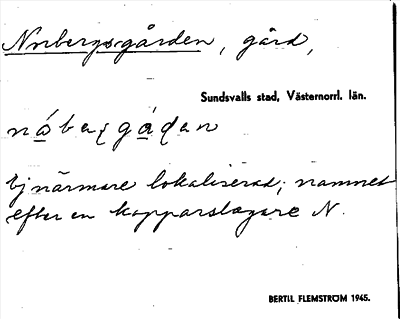 Norbergsgården, gård,
Sundsvalls stad, Västernorrl. län.
nåbergådan
Ej närmare lokaliserad; namnet
efter en kopparslagare N.
BERTIL FLEMSTRÖM 1945.